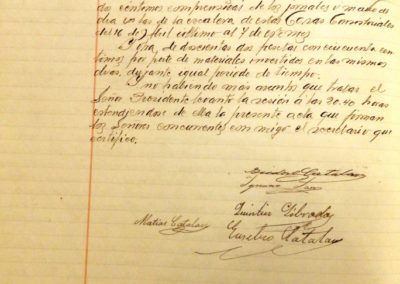 dos centimos comprensivas de los jornales o mano de
obra        de la escalera de estas Casas Consistoriales
del 16 de Abril ultimo al 7 de
Y otra de doscientas dos pesetas con cincuenta cen
timos por   de materiales invertidos en las mismas
obras, durante igual periodo de tiempo.
Y no habiendo mas asuntos que tratar el
Señor Presidente levanto la sesión á las 20.40 horas
extendiendose de ella la presente acta que firman
los Señores concurrentes conmigo el secretario que
certifico.
Catalan
Ignacio
Quintin Librada
Matias Catalan
Eusebio Catalan